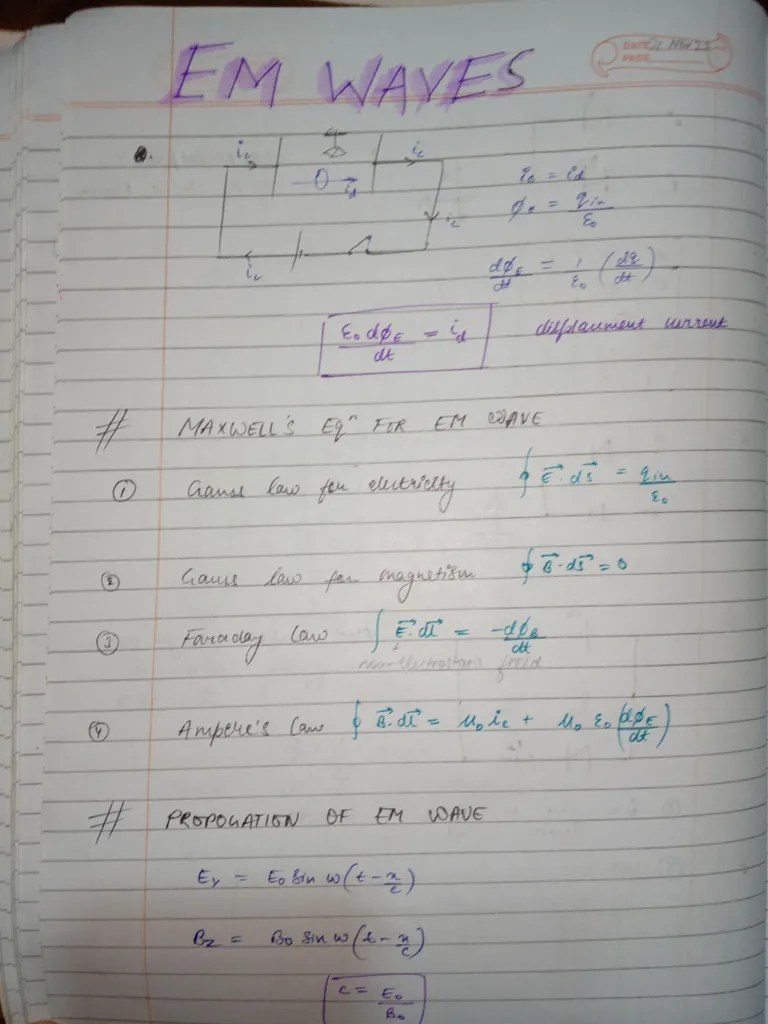 DATE
PAGE
EM WAVES
i_c i_c
i_d i_c = i_d
i_c ϕ_E = q_in/ε₀
i_c
dϕ_E/dt = 1/ε₀ (dq/dt)
ε₀ dϕ_E/dt = i_d displacment current
# MAXWELL'S Eqⁿ FOR EM WAVE
① Gauss law for electricity ∮ E⃗ . ds⃗ = q_in/ε₀
② Gauss law for magnetism ∮ B⃗ . ds⃗ = 0
③ Faraday law ∫ E⃗ . dl⃗ = -dϕ_B/dt
non-electrostatic field
④ Ampere's law ∮ B⃗ . dl⃗ = μ₀ i_c + μ₀ ε₀ (dϕ_E/dt)
# PROPOGATION OF EM WAVE
E_y = E₀ sin w(t - x/c)
B_z = B₀ sin w(t - x/c)
c = E₀/B₀